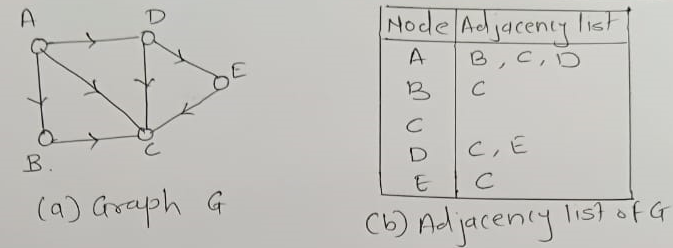 A
D
E
B.
C
(a) Graph G
Node Adjacency list
A B, C, D
B C
C
D C, E
E C
(b) Adjacency list of G